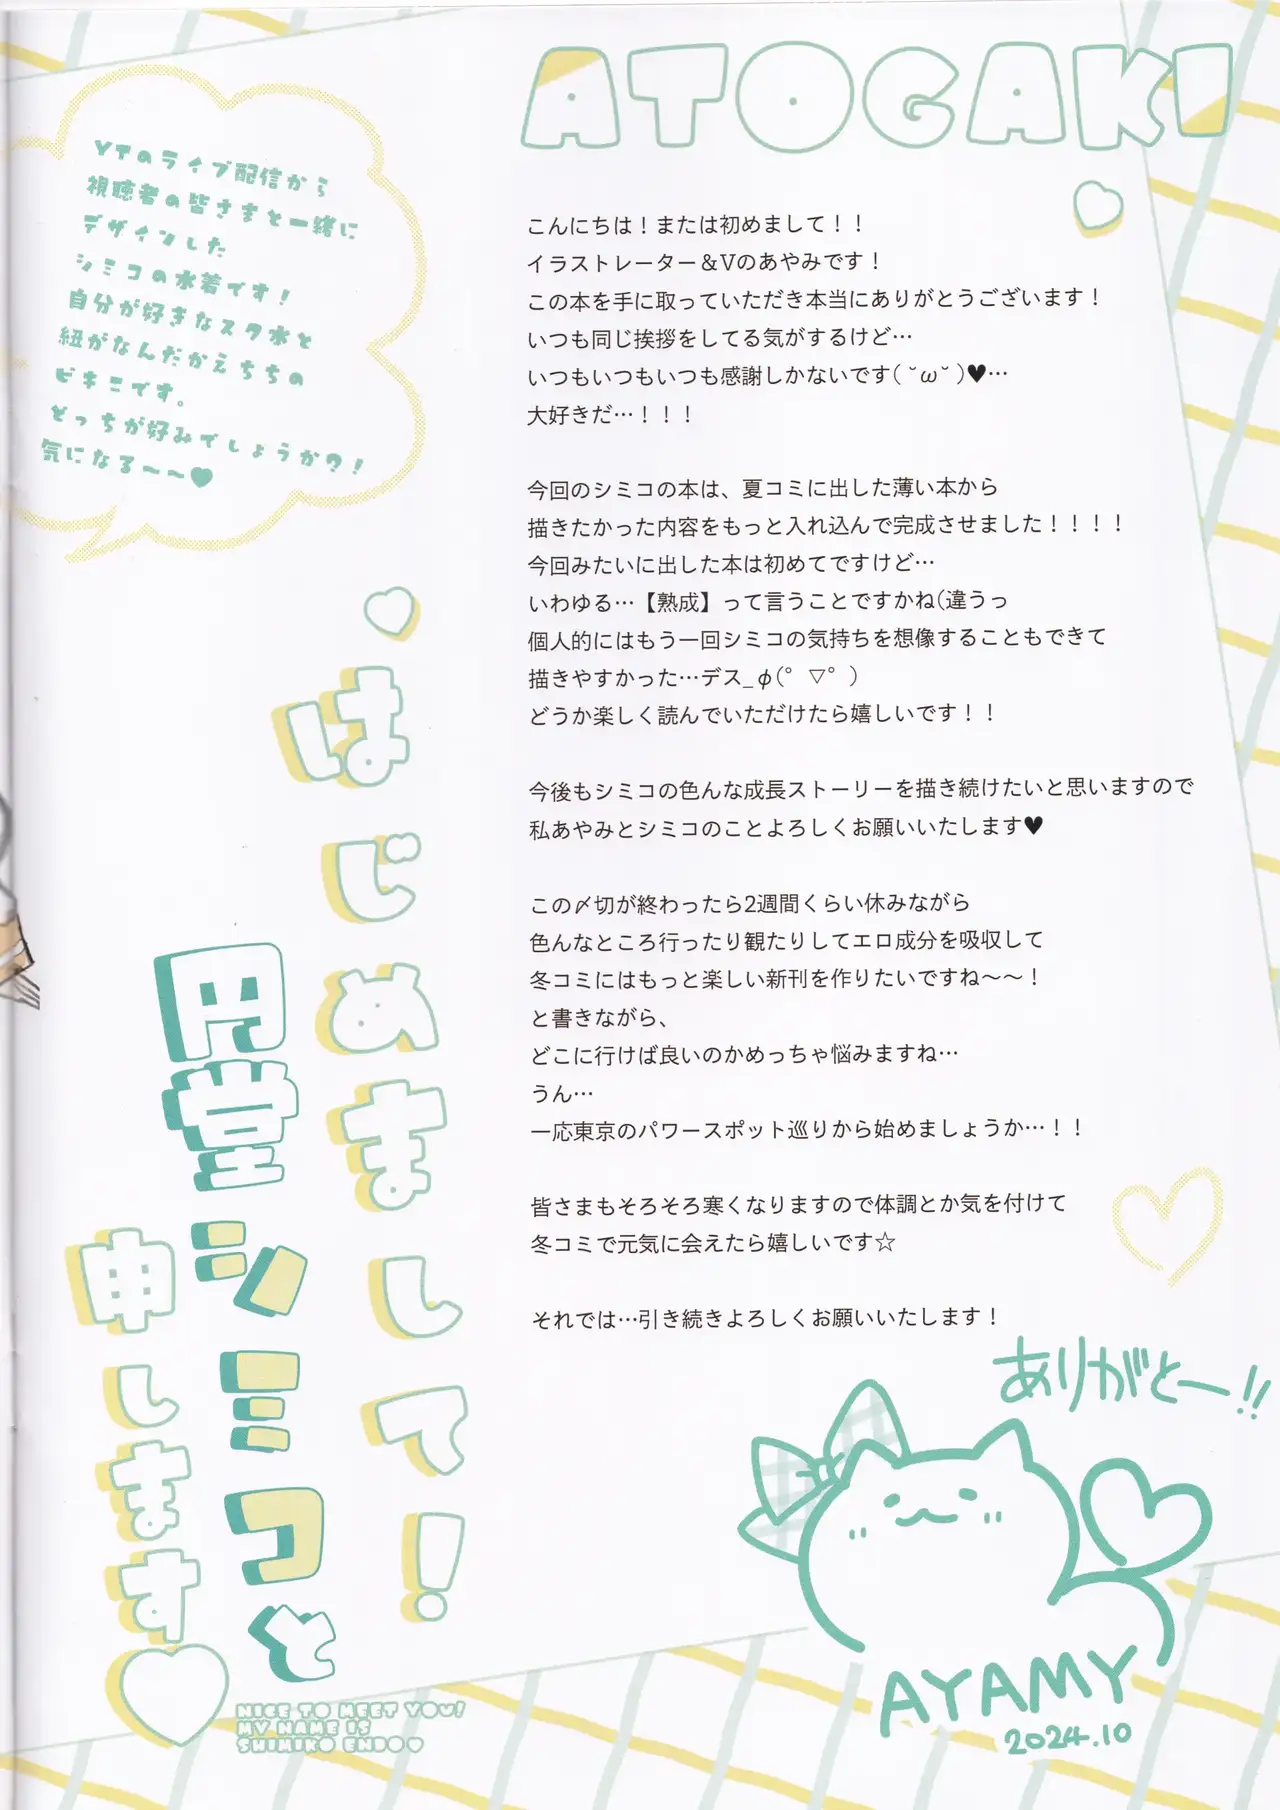 ATOGAKI
YTのライブ配信から
視聴者の皆さまと一緒に
デザインした
シミコの水着です！
自分が好きなスク水と
紐がなんだかえちちの
ビキニです。
どっちが好みでしょうか？！
気になる～～♥
こんにちは！または初めまして！！
イラストレーター＆Vのあやみです！
この本を手に取っていただき本当にありがとうございます！
いつも同じ挨拶をしてる気がするけど…
いつもいつもいつも感謝しかないです( ˘ω˘ )♥…
大好きだ…！！！
今回のシミコの本は、夏コミに出した薄い本から
描きたかった内容をもっと入れ込んで完成させました！！！！
今回みたいに出した本は初めてですけど…
いわゆる…【熟成】って言うことですかね(違うっ
個人的にはもう一回シミコの気持ちを想像することもできて
描きやすかった…デス_φ(゜▽゜)
どうか楽しく読んでいただけたら嬉しいです！！
今後もシミコの色んな成長ストーリーを描き続けたいと思いますので
私あやみとシミコのことよろしくお願いいたします♥
この〆切が終わったら2週間くらい休みながら
色んなところ行ったり観たりしてエロ成分を吸収して
冬コミにはもっと楽しい新刊を作りたいですね～～！
と書きながら、
どこに行けば良いのかめっちゃ悩みますね…
うん…
一応東京のパワースポット巡りから始めましょうか…！！
皆さまもそろそろ寒くなりますので体調とか気を付けて
冬コミで元気に会えたら嬉しいです☆
それでは…引き続きよろしくお願いいたします！
はじめまして！
円堂シミコと
申します♡
NICE TO MEET YOU!
MY NAME IS
SHIMIKO ENDO♥
ありがとー!!
AYAMY
2024.10